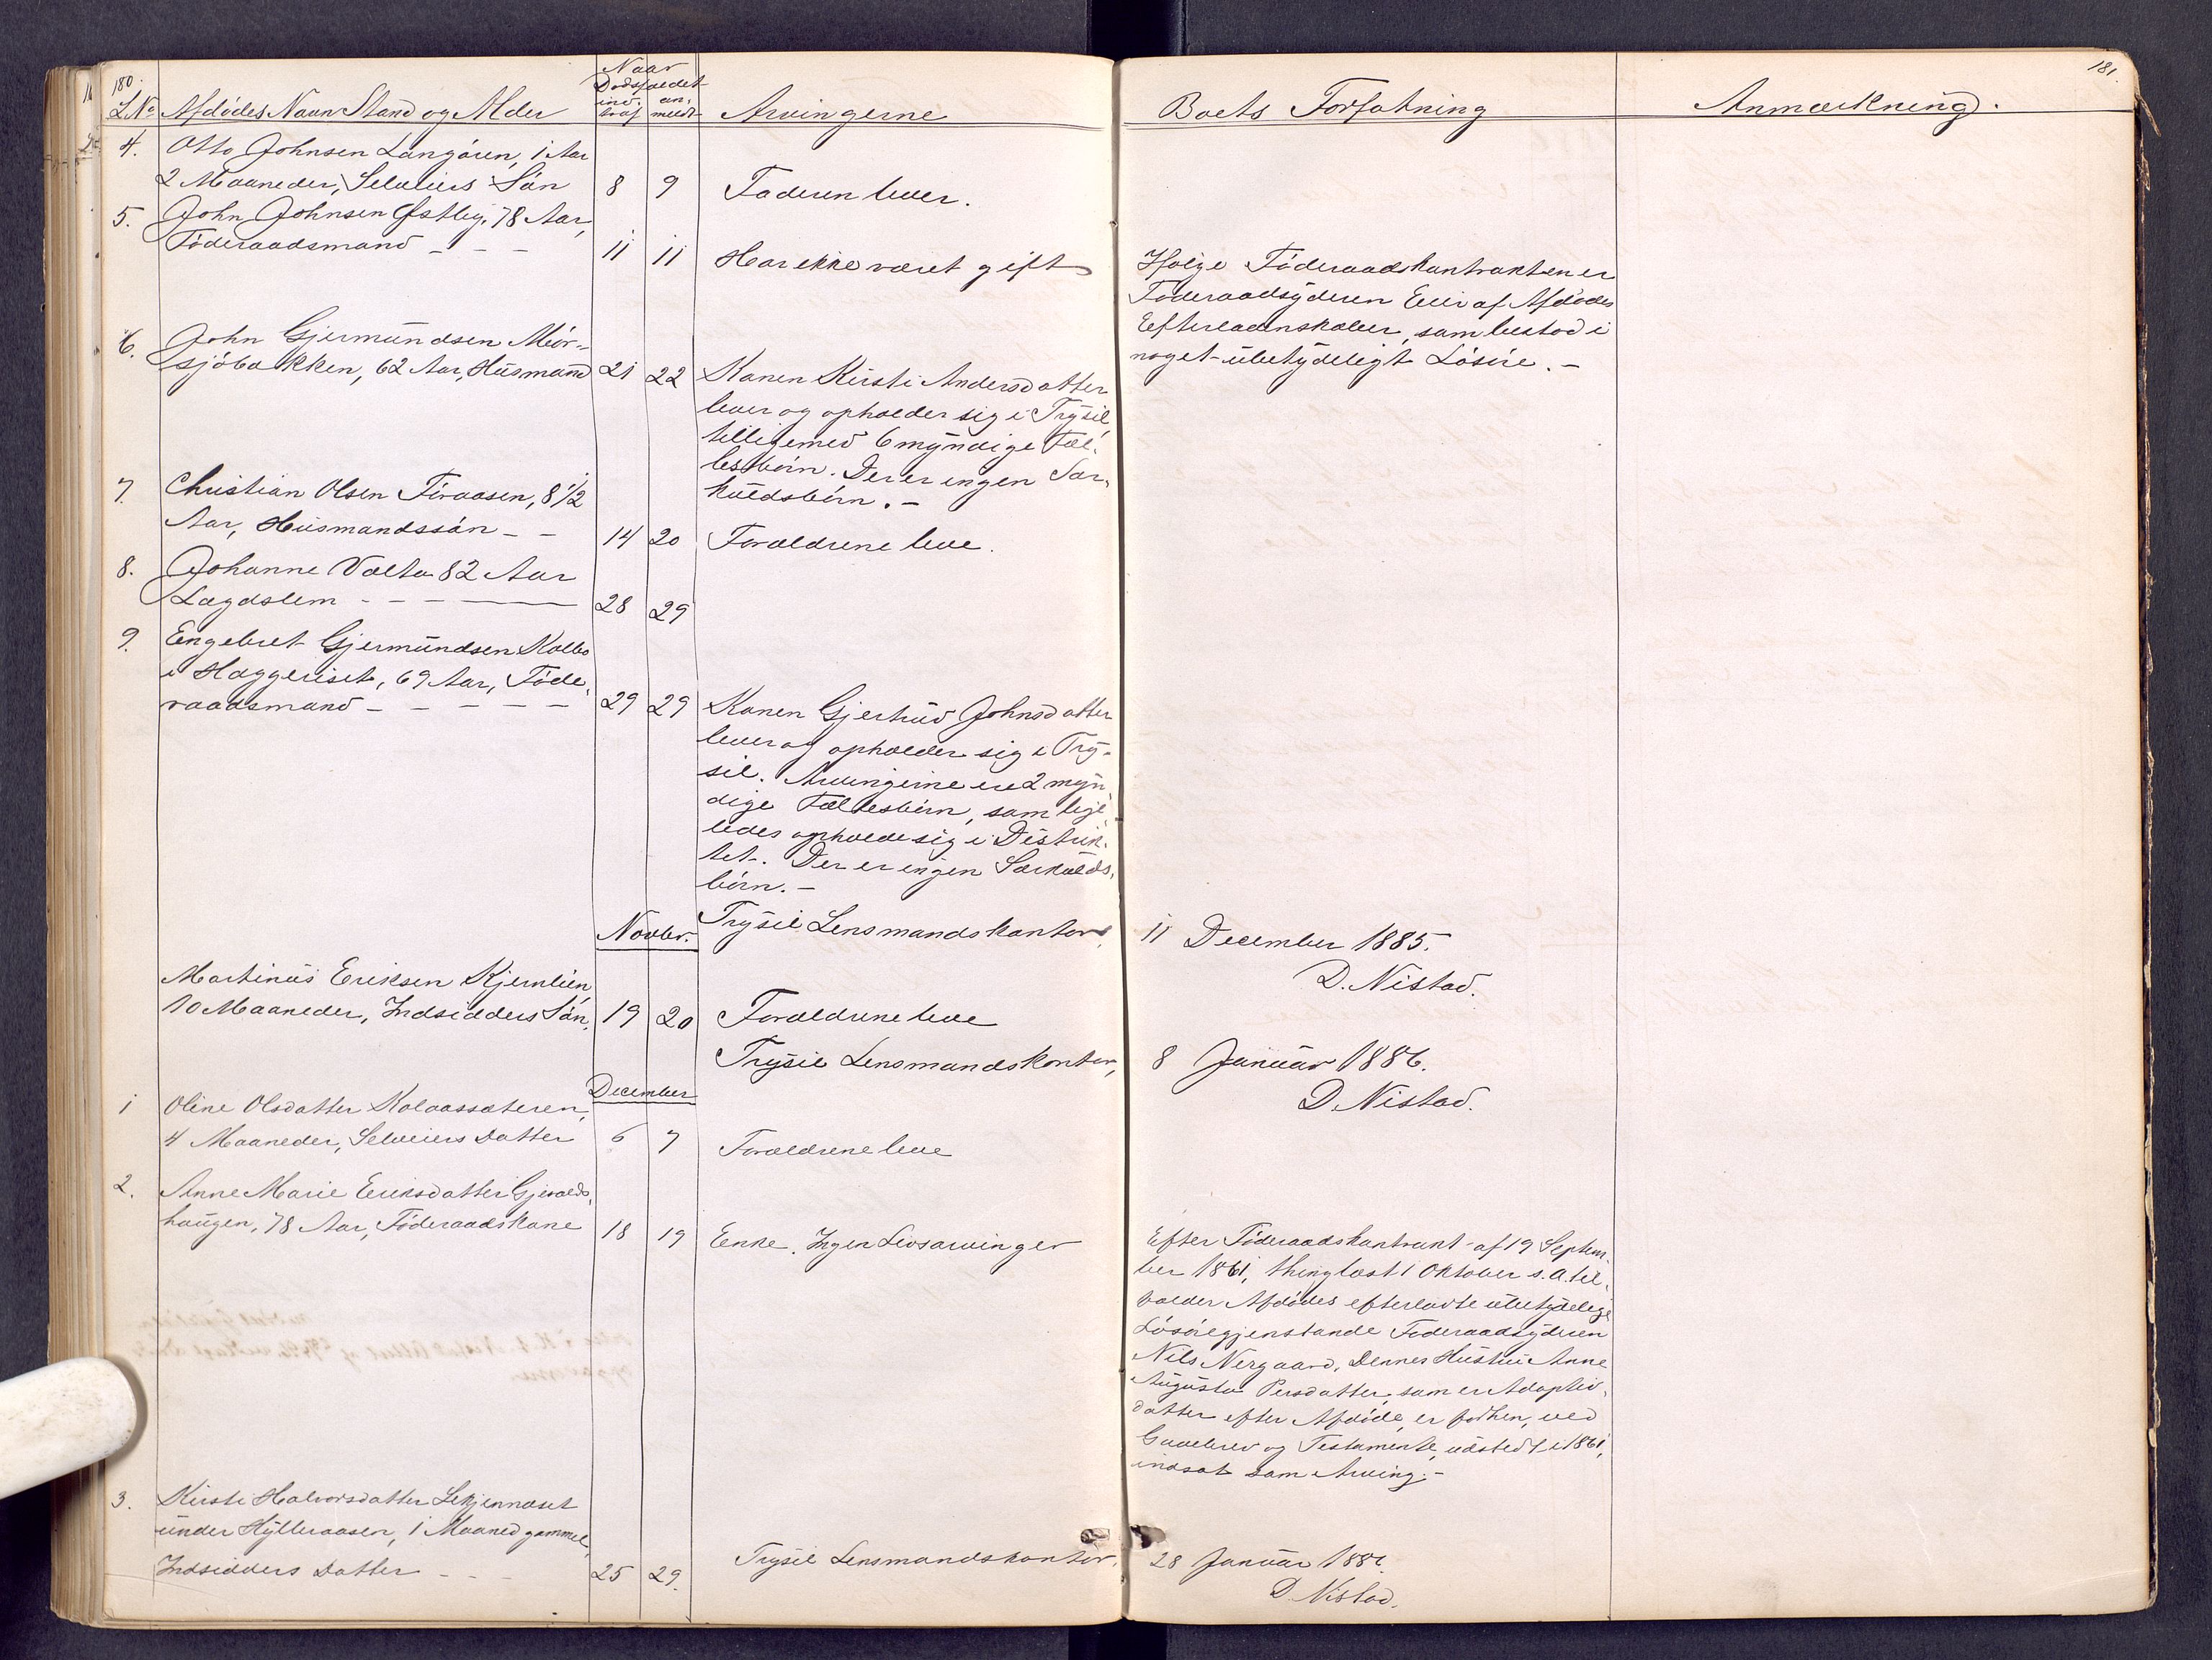 180.
181.
Naar
Dødsfaldet
L.No Afdødes Navn Stand og Alder indtraf anmeldt Arvingerne Boets Forfatning Anmærkning.
4. Otto Johnsen Langøren, 1 Aar
2 Maaneder, Selveiers Søn 8 9 Faderen lever.
5. John Johnsen Østby, 78 Aar,
Føderaadsmand – – – 11 11 Har ikke været gift
Ifølge Føderaadskontrakten er
Føderaadsyderen Eier af Afdødes
Efterladenskaber, som bestod i
noget ubetydeligt Løsøre. –
6. John Gjermundsen Mør-
sjøbakken, 62 Aar, Husmand 21 22 Konen Kirsti Andersdatter
lever og opholder sig i Trysil,
tilligemed 6 myndige Fæl-
lesbørn. Der er ingen Sær-
kuldsbørn. –
7. Christian Olsen Furaasen, 8 1/2
Aar, Husmandssøn – – 14 20 Forældrene leve.
8. Johanne Valta 82 Aar
Lægdslem – – – 28 29
9. Engebret Gjermundsen Kolbo
i Haggeriset, 69 Aar, Føde-
raadsmand – – – – – 29 29 Konen Gjertrud Johnsdatter
lever og opholder sig i Try-
sil. Arvingerne ere 2 myn-
dige Fællesbørn, som lige-
ledes opholde sig i Distrik-
tet. Der er ingen Særkulds-
børn. –
Trysil Lensmandskontor, 11 December 1885.
D. Nistad.
Novbr.
Martinus Eriksen Kjernlien,
10 Maaneder, Indsidders Søn, 19 20 Forældrene leve
Trysil Lensmandskontor, 8 Januar 1886.
D. Nistad.
December
1 Oline Olsdatter Kolaassæteren,
4 Maaneder, Selveiers Datter 6 7 Forældrene leve
2. Anne Marie Eriksdatter Gjevalds-
haugen, 78 Aar, Føderaadskone 18 19 Enke. Ingen Livsarvinger
Efter Føderaadskontrakt af 19 Septem-
ber 1861, thinglæst 1 Oktober s. A. til-
falder Afdødes efterladte ubetydelige
Løsøregjenstande Føderaadsyderen
Nils Nergaard. Dennes Hustru Anne
Augusta Persdatter, som er Adoptiv-
datter efter Afdøde, er forhen, ved
Gavebrev og Testamente, udstedt i 1861,
indsat som Arving. –
3. Kirsti Halvorsdatter
under Hylleraasen, 1 Maaned gammel,
Indsidders Datter – – – 25 29.
Trysil Lensmandskontor, 28 Januar 1886.
D. Nistad.